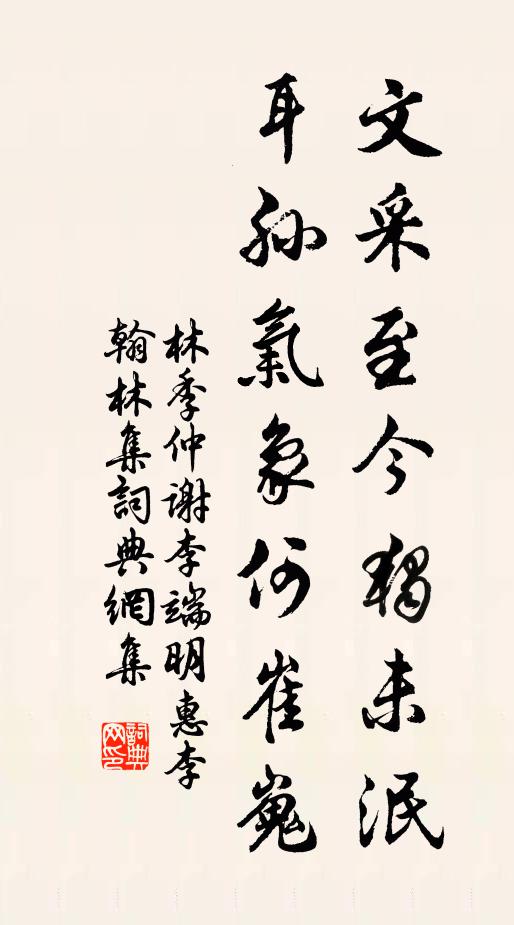 文采至今獨未泯
耳孫氣象何崔嵬
林季仲謝李端明惠李
翰林集詞典網集
詞典网印